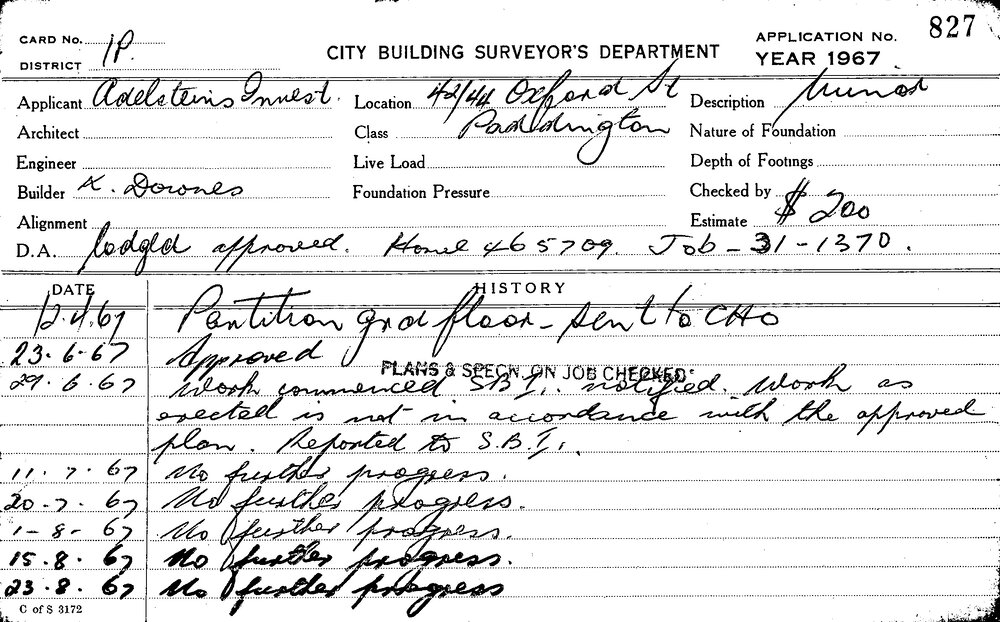 827
CARD No. 1P.
DISTRICT
CITY BUILDING SURVEYOR'S DEPARTMENT
APPLICATION No.
YEAR 1967
Applicant Adelsteins Invest.
Location 42/44 Oxford St
Paddington
Description Minor
Architect
Class
Nature of Foundation
Engineer
Live Load
Depth of Footings
Builder K. Downes
Foundation Pressure
Checked by
Alignment
Estimate $ 200
D.A. lodgd approved. Home 465709. Job - 31-1370.
DATE HISTORY
12.4.67 Partition grd floor - sent to CHO
23.6.67 Approved
PLANS & SPECN. ON JOB CHECKED
29.6.67 Work commenced S.B.I. notified. Work as
erected is not in accordance with the approved
plan. Reported to S.B.I.
11.7.67 No further progress.
20.7.67 No further progress.
1-8-67 No further progress.
15.8.67 No further progress.
23.8.67 No further progress
C of S 3172